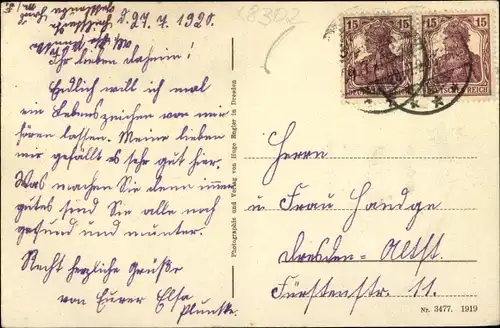 D. 27. 7. 1920.
Ihr lieben daheim!
Endlich will ich mal
ein Lebenszeichen von mir
hören lassen. Meine lieben
mir gefällt es sehr gut hier.
Was machen Sie denn immer
gutes sind Sie alle noch
gesund und munter.
Recht herzliche Grüße
von Eurer Elsa
28302
Photographie und Verlag von Hugo Engler in Dresden
15 15 15
DEUTSCHES REICH
Herrn
u Frau Handge
Dresden-Altst.
Fürstenstr. 11.
Nr. 3477. 1919